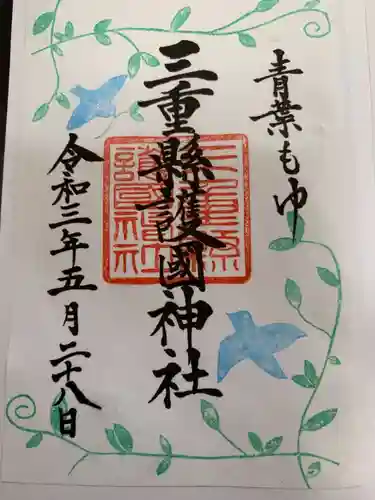 青葉もゆ
三重縣護國神社
三重縣護國神社
令和三年五月二十八日